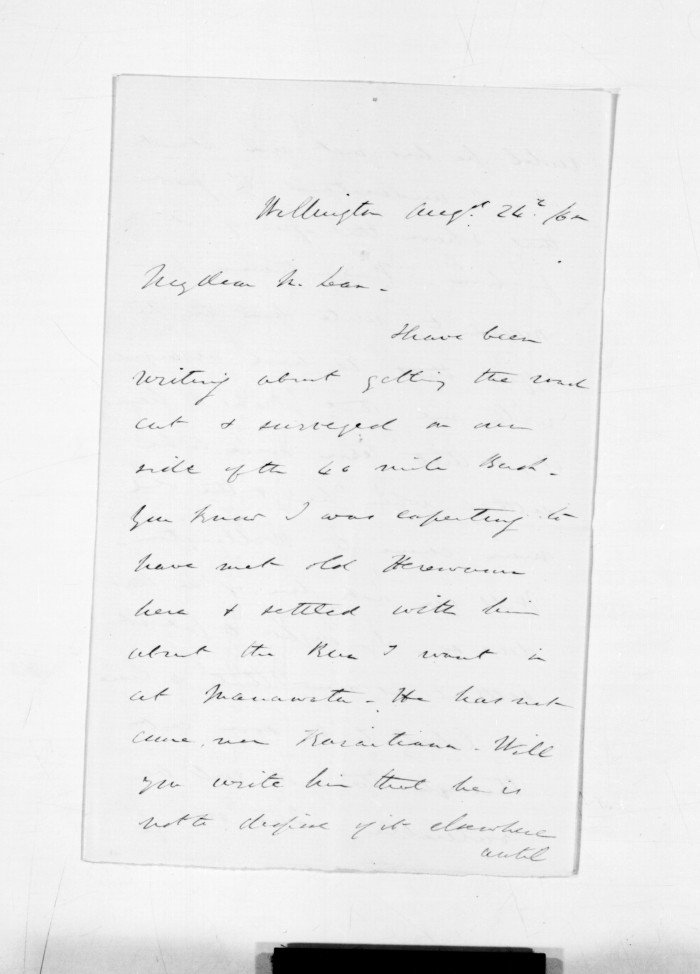 Wellington Augst 24th /60
My dear McLean -
I have been
writing about getting the road
cut & surveyed on our
side of the 40 mile Bush -
You know I was expecting to
have met old
here & settled with him
about the Run I want in
at Manawatu - He has not
come, nor Karaitiana. Will
you write him that he is
not to dispose of it elsewhere
until